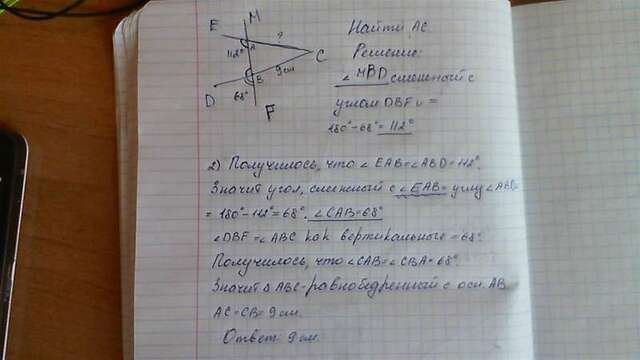 M
E
A
?
112°
C
9 см
B
D
68°
F
Найти AC
Решение:
∠MBD смежный с
углом DBF и =
180°-68°=112°
2) Получилось, что ∠EAB=∠ABD=112°.
Значит угол, смежный с ∠EAB= углу ∠ABC=
= 180°-112°=68°. ∠CAB=68°
∠DBF=∠ABC как вертикальные =68°.
Получилось, что ∠CAB=∠CBA=68°.
Значит ΔABC-равнобедренный с осн. AB
AC=CB=9 см.
Ответ 9 см.